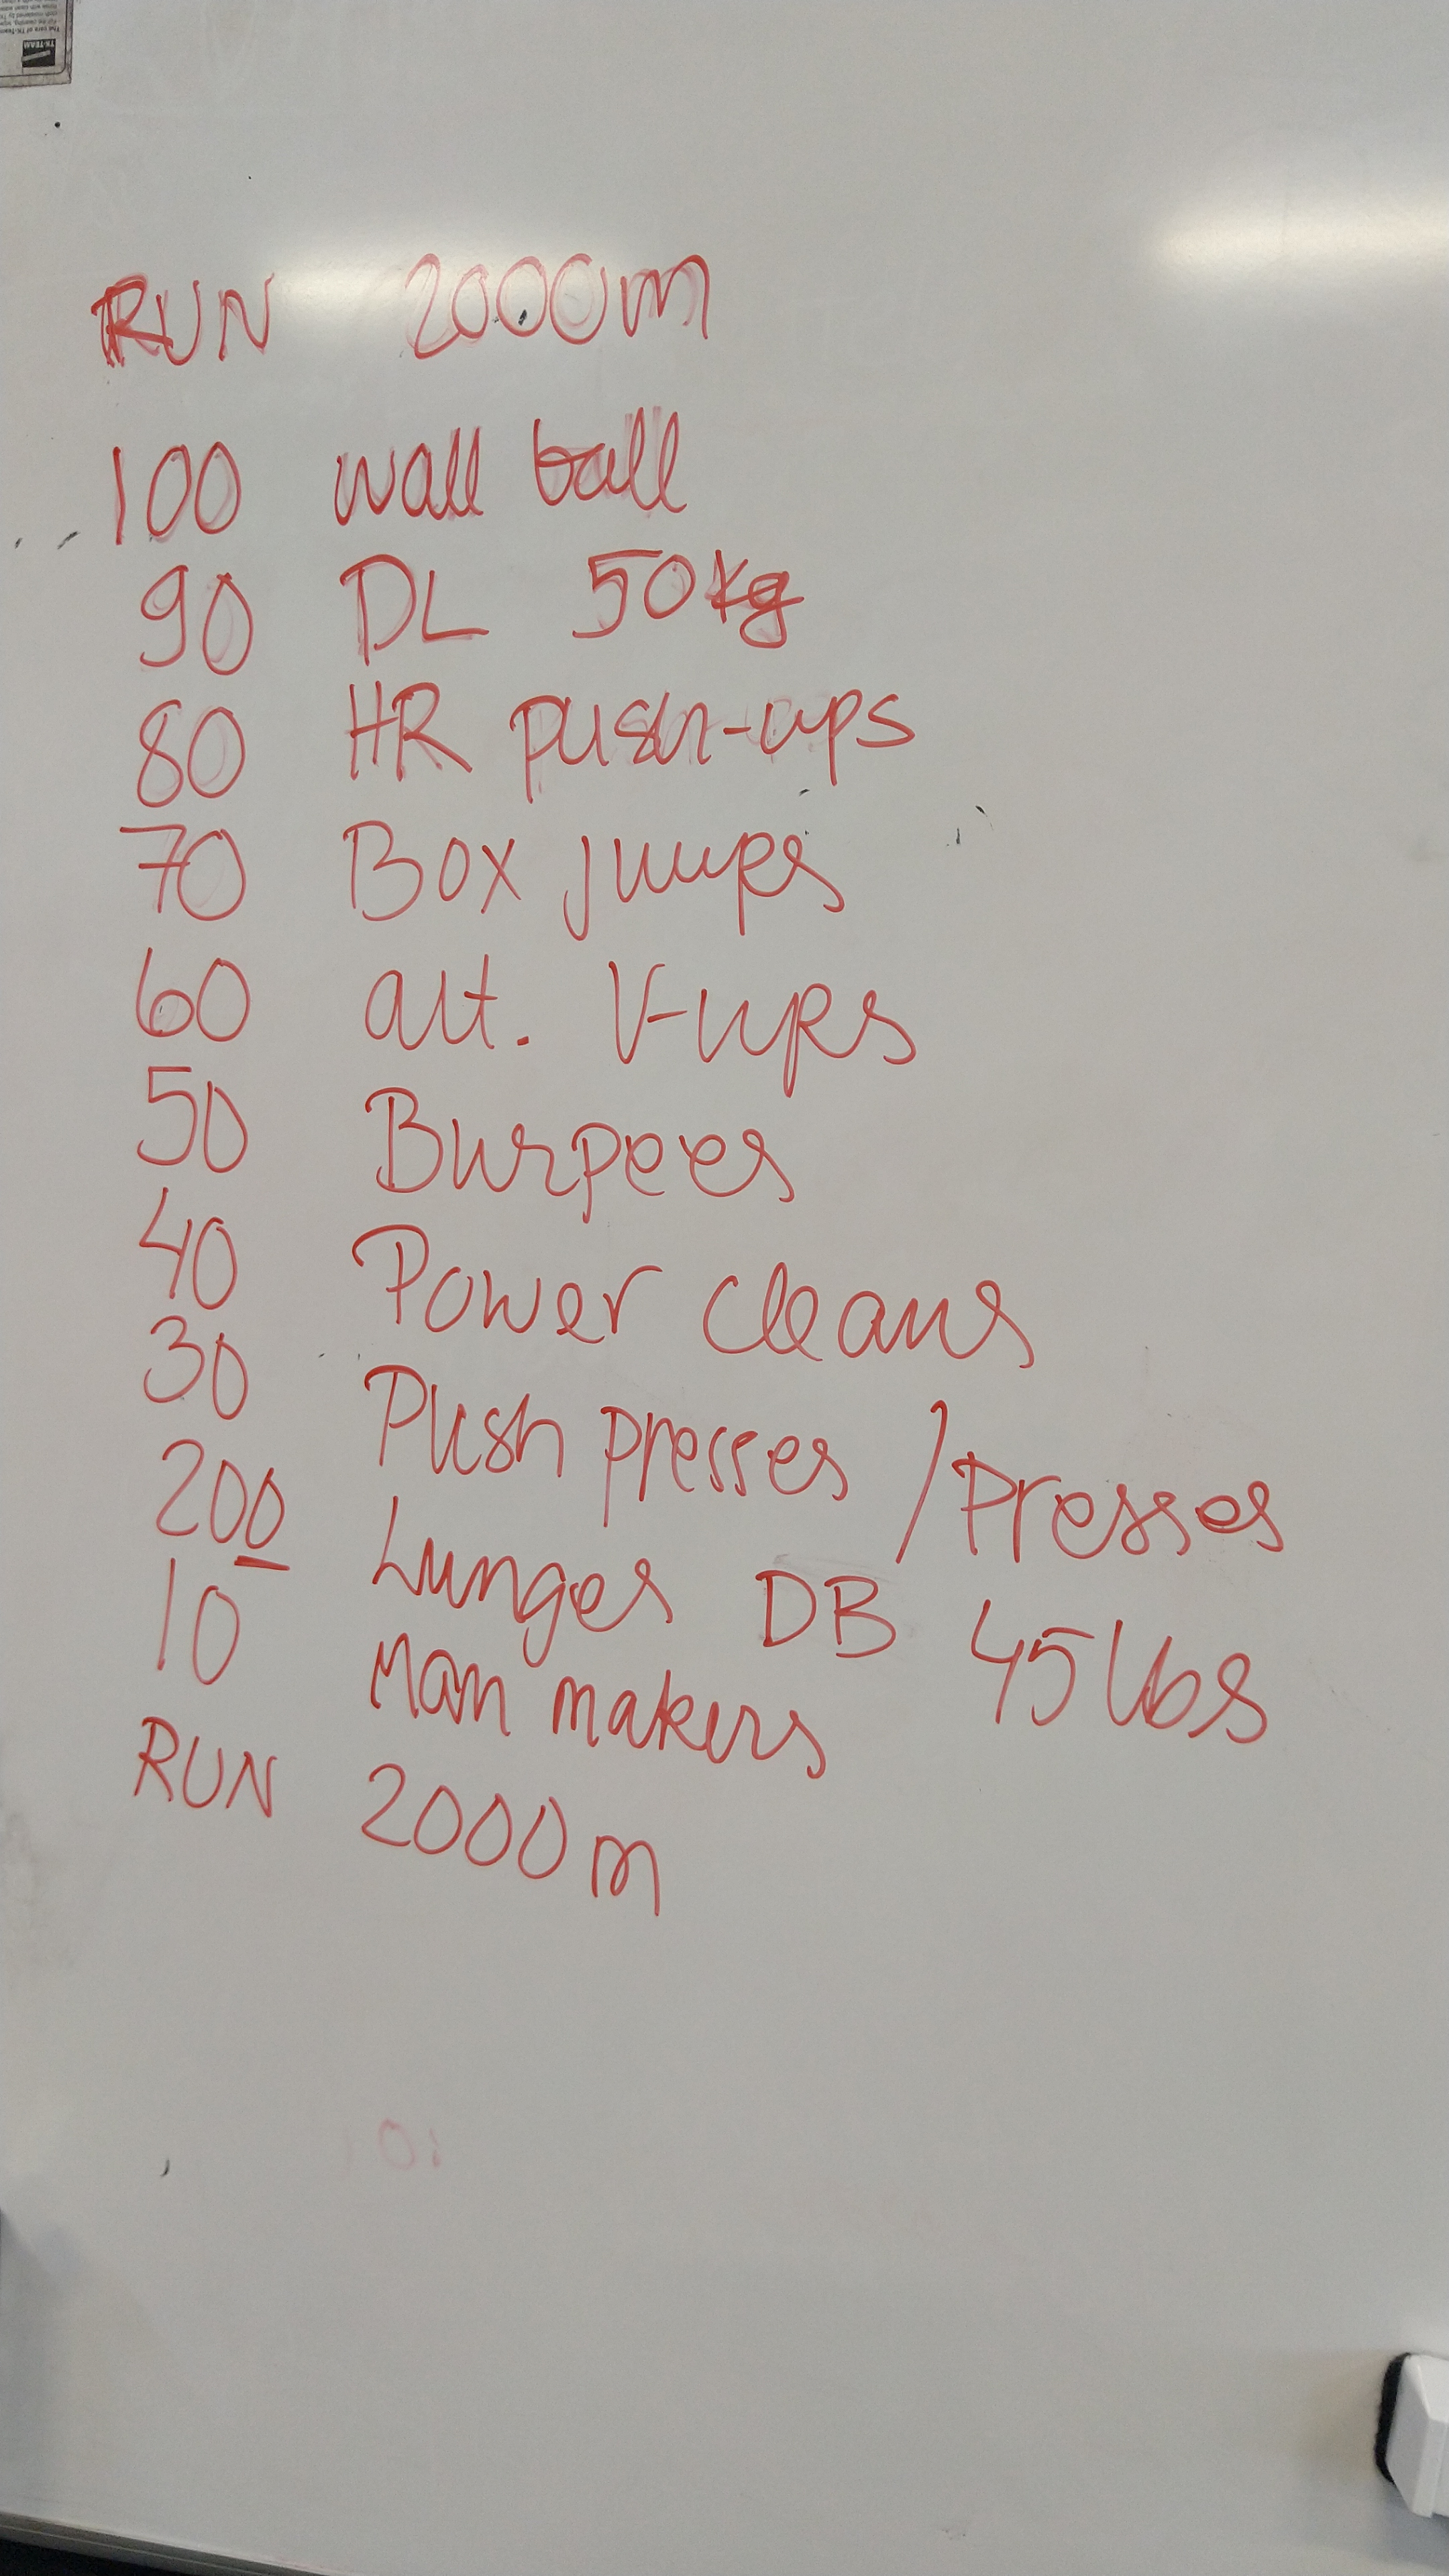 RUN 2000m
100 wall ball
90 DL 50kg
80 HR push-ups
70 Box jumps
60 alt. V-ups
50 Burpees
40 Power cleans
30 Push presses / Presses
200 Lunges DB 45 lbs
10 Man makers
RUN 2000m